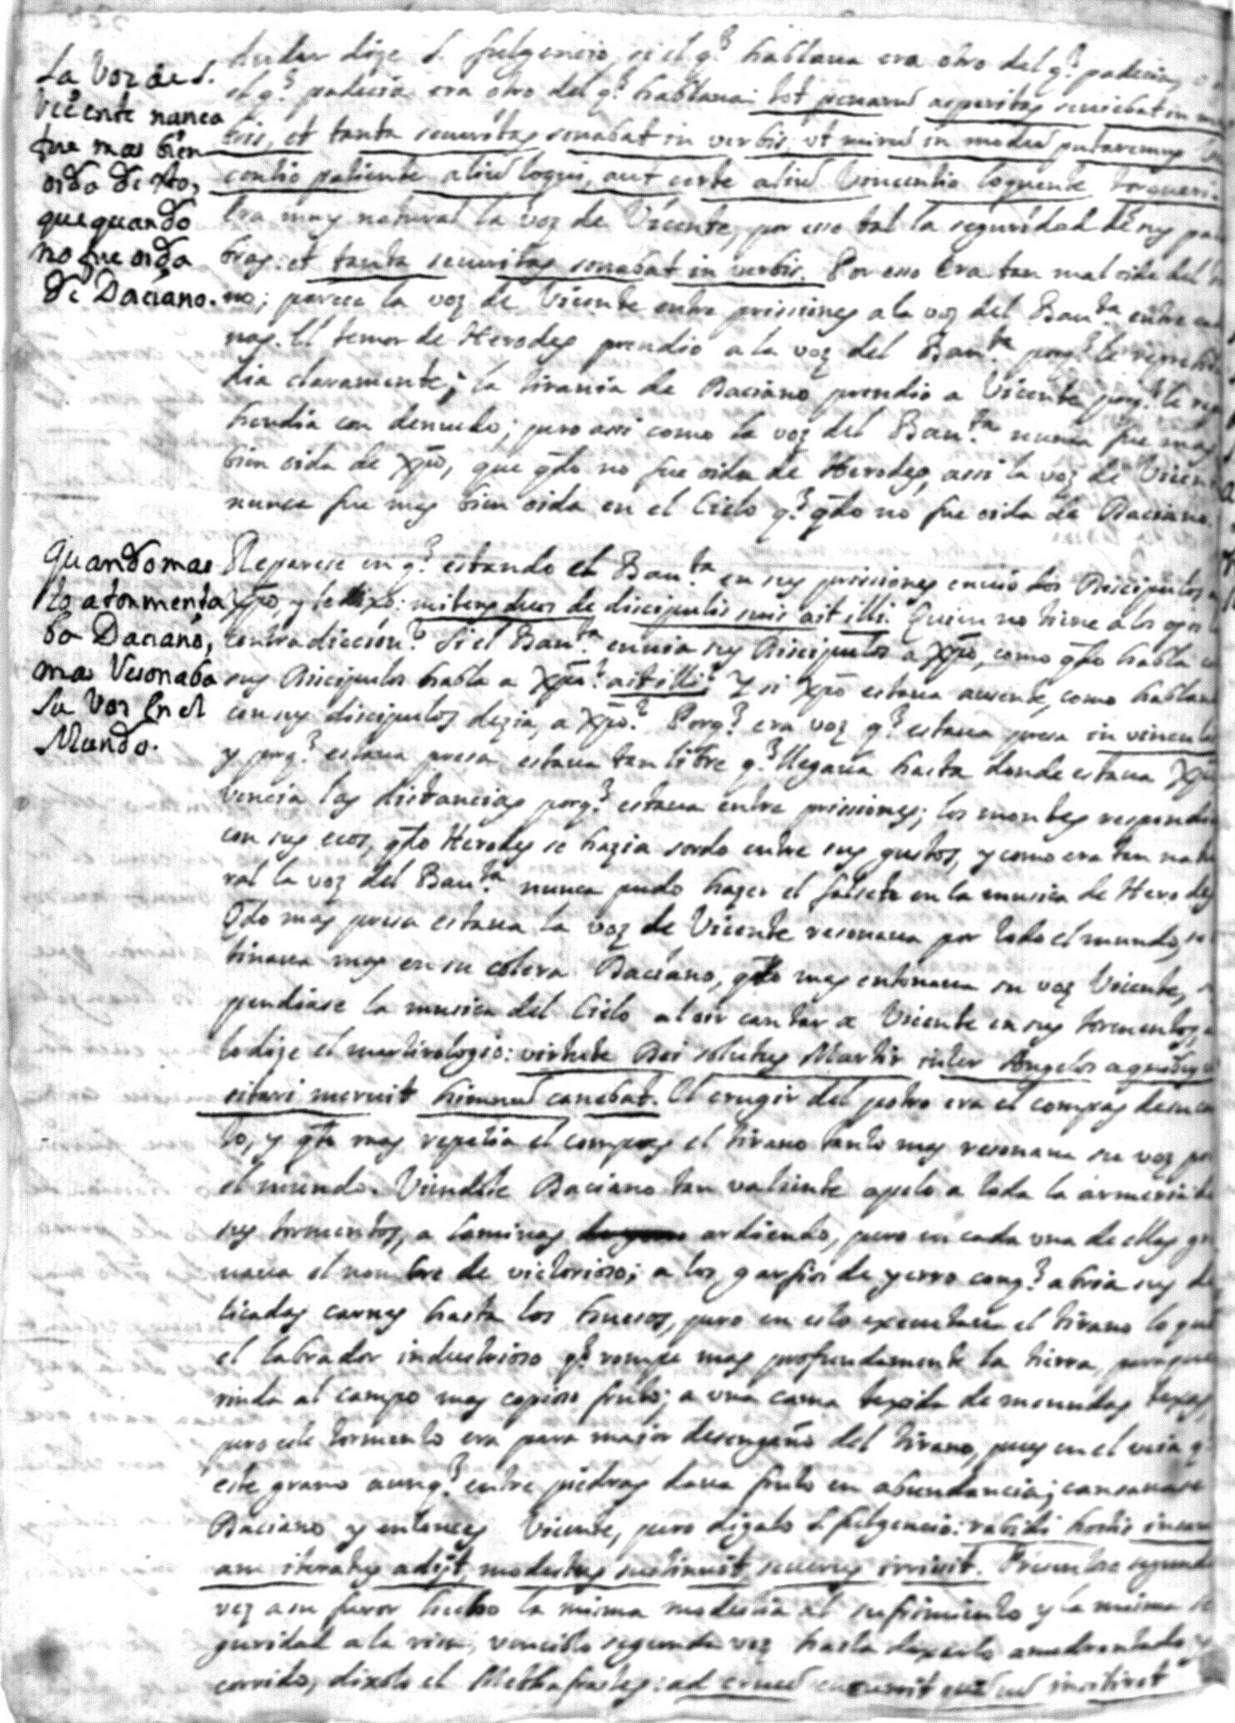 La Voz de S.
Vicente nunca
fue mas bien
oida de Xto,
que quando
no fue oida
de Daciano.
dudar dize S. fulgencio, si el q̃ hablaua era otro del q̃ padecia, o
el q̃ padecia era otro del q̃ hablaua: tot penarũ asperitas seuiebat in
bris, et tanta securitas sonabat in verbis, ut mirũ in modũ putaremus
centio patiente aliũ loqui, aut certe aliũ Vincentio loquente torqueri.
Era muy natural la voz de Vicente, por esso tal la seguridad de sus pala
bras: et tanta securitas sonabat in verbis. Por esso era tan mal oida del
no; parece la voz de Vicente entre prissiones a la voz del Bau.ta entre
nas. El temor de Herodes prendio a la voz del Bau.ta porq̃ le reprehen
dia claramente; la tirania de Daciano prendio a Vicente porq̃ le
hendia con denuedo; pero assi como la voz del Bau.ta nunca fue mas
bien oida de Xp̃o, que q̃do no fue oida de Herodes, assi la voz de Vicente
nunca fue mas bien oida en el Cielo q̃ q̃do no fue oida de Daciano.
Quando mas
lo atormenta
ba Daciano,
mas Resonaba
su Voz En el
Mundo.
Reparese en q̃ estando el Bau.ta en sus prissiones enuio dos Discipulos a
Xp̃o y le dixo: mitens duos de discipulis suis ait illi. Quien no tiene a los ojos la
contradiccion? Si el Bau.ta enuia sus Discipulos a Xp̃o, como q̃do habla con
sus Discipulos habla a Xp̃o? ait illi? Y si Xp̃o estaua ausente, como hablando
con sus discipulos dezia, a Xp̃o? Porq̃ era voz q̃ estaua presa in vinculis
y porq̃ estaua presa estaua tan libre q̃ llegaua hasta donde estaua Xp̃o
vencia las distancias porq̃ estaua entre prissiones; los montes respondian
con sus ecos, q̃do Herodes se hazia sordo entre sus gustos, y como era tan natu
ral la voz del Bau.ta nunca pudo hazer el falsete en la musica de Herodes
Q̃do mas presa estaua la voz de Vicente resonaua por todo el mundo,
tinaua mas en su colera Daciano, q̃do mas entonaua su voz Vicente,
pendiase la musica del Cielo al oir cantar a Vicente en sus tormentos,
lo dize el martirologio: virtute Dei solutus Martir inter Angelos a quibus
sitari meruit himnũ canebat. El crugir del potro era el compas de su can
to, y q̃to mas repetia el compas el tirano tanto mas resonaua su voz por
el mundo. Viendole Daciano tan valiente apelo a toda la armeria de
sus tormentos, a laminas ardiendo, pero en cada una de ellas
uaua el nombre de victorioso; a los garfios de yerro conq̃ abria sus de
licadas carnes hasta los huesos, pero en esto executaua el tirano lo que
el labrador industrioso q̃ rompe mas profundamente la tierra, paraque
rinda al campo mas copioso fruto; a una cama texida de menudas texas,
pero este tormento era para maior desengaño del tirano, pues en el veia q̃
este grano aunq̃ entre piedras daua fruto en abundancia; cansauase
Daciano y entonces Vicente, pero digalo S. fulgencio: rabidi hostis
iteratus adijt, modestus sustinuit, securus irrisit. Presentose segunda
vez a su furor hecho la misma modestia al sufrimiento y la misma se
guridad a la risa, venciolo segunda voz hasta dexarlo amedrentado y
corrido, dixolo el Methafrastes: ad